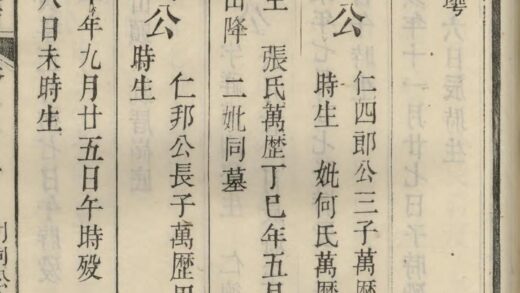 公
仁四郎公三子萬歷
時生 妣何氏萬歷
張氏萬歷丁巳年五月
山降 二妣同墓
公
仁邦公長子萬歷
時生
年九月廿五日午時歿
八日未時生